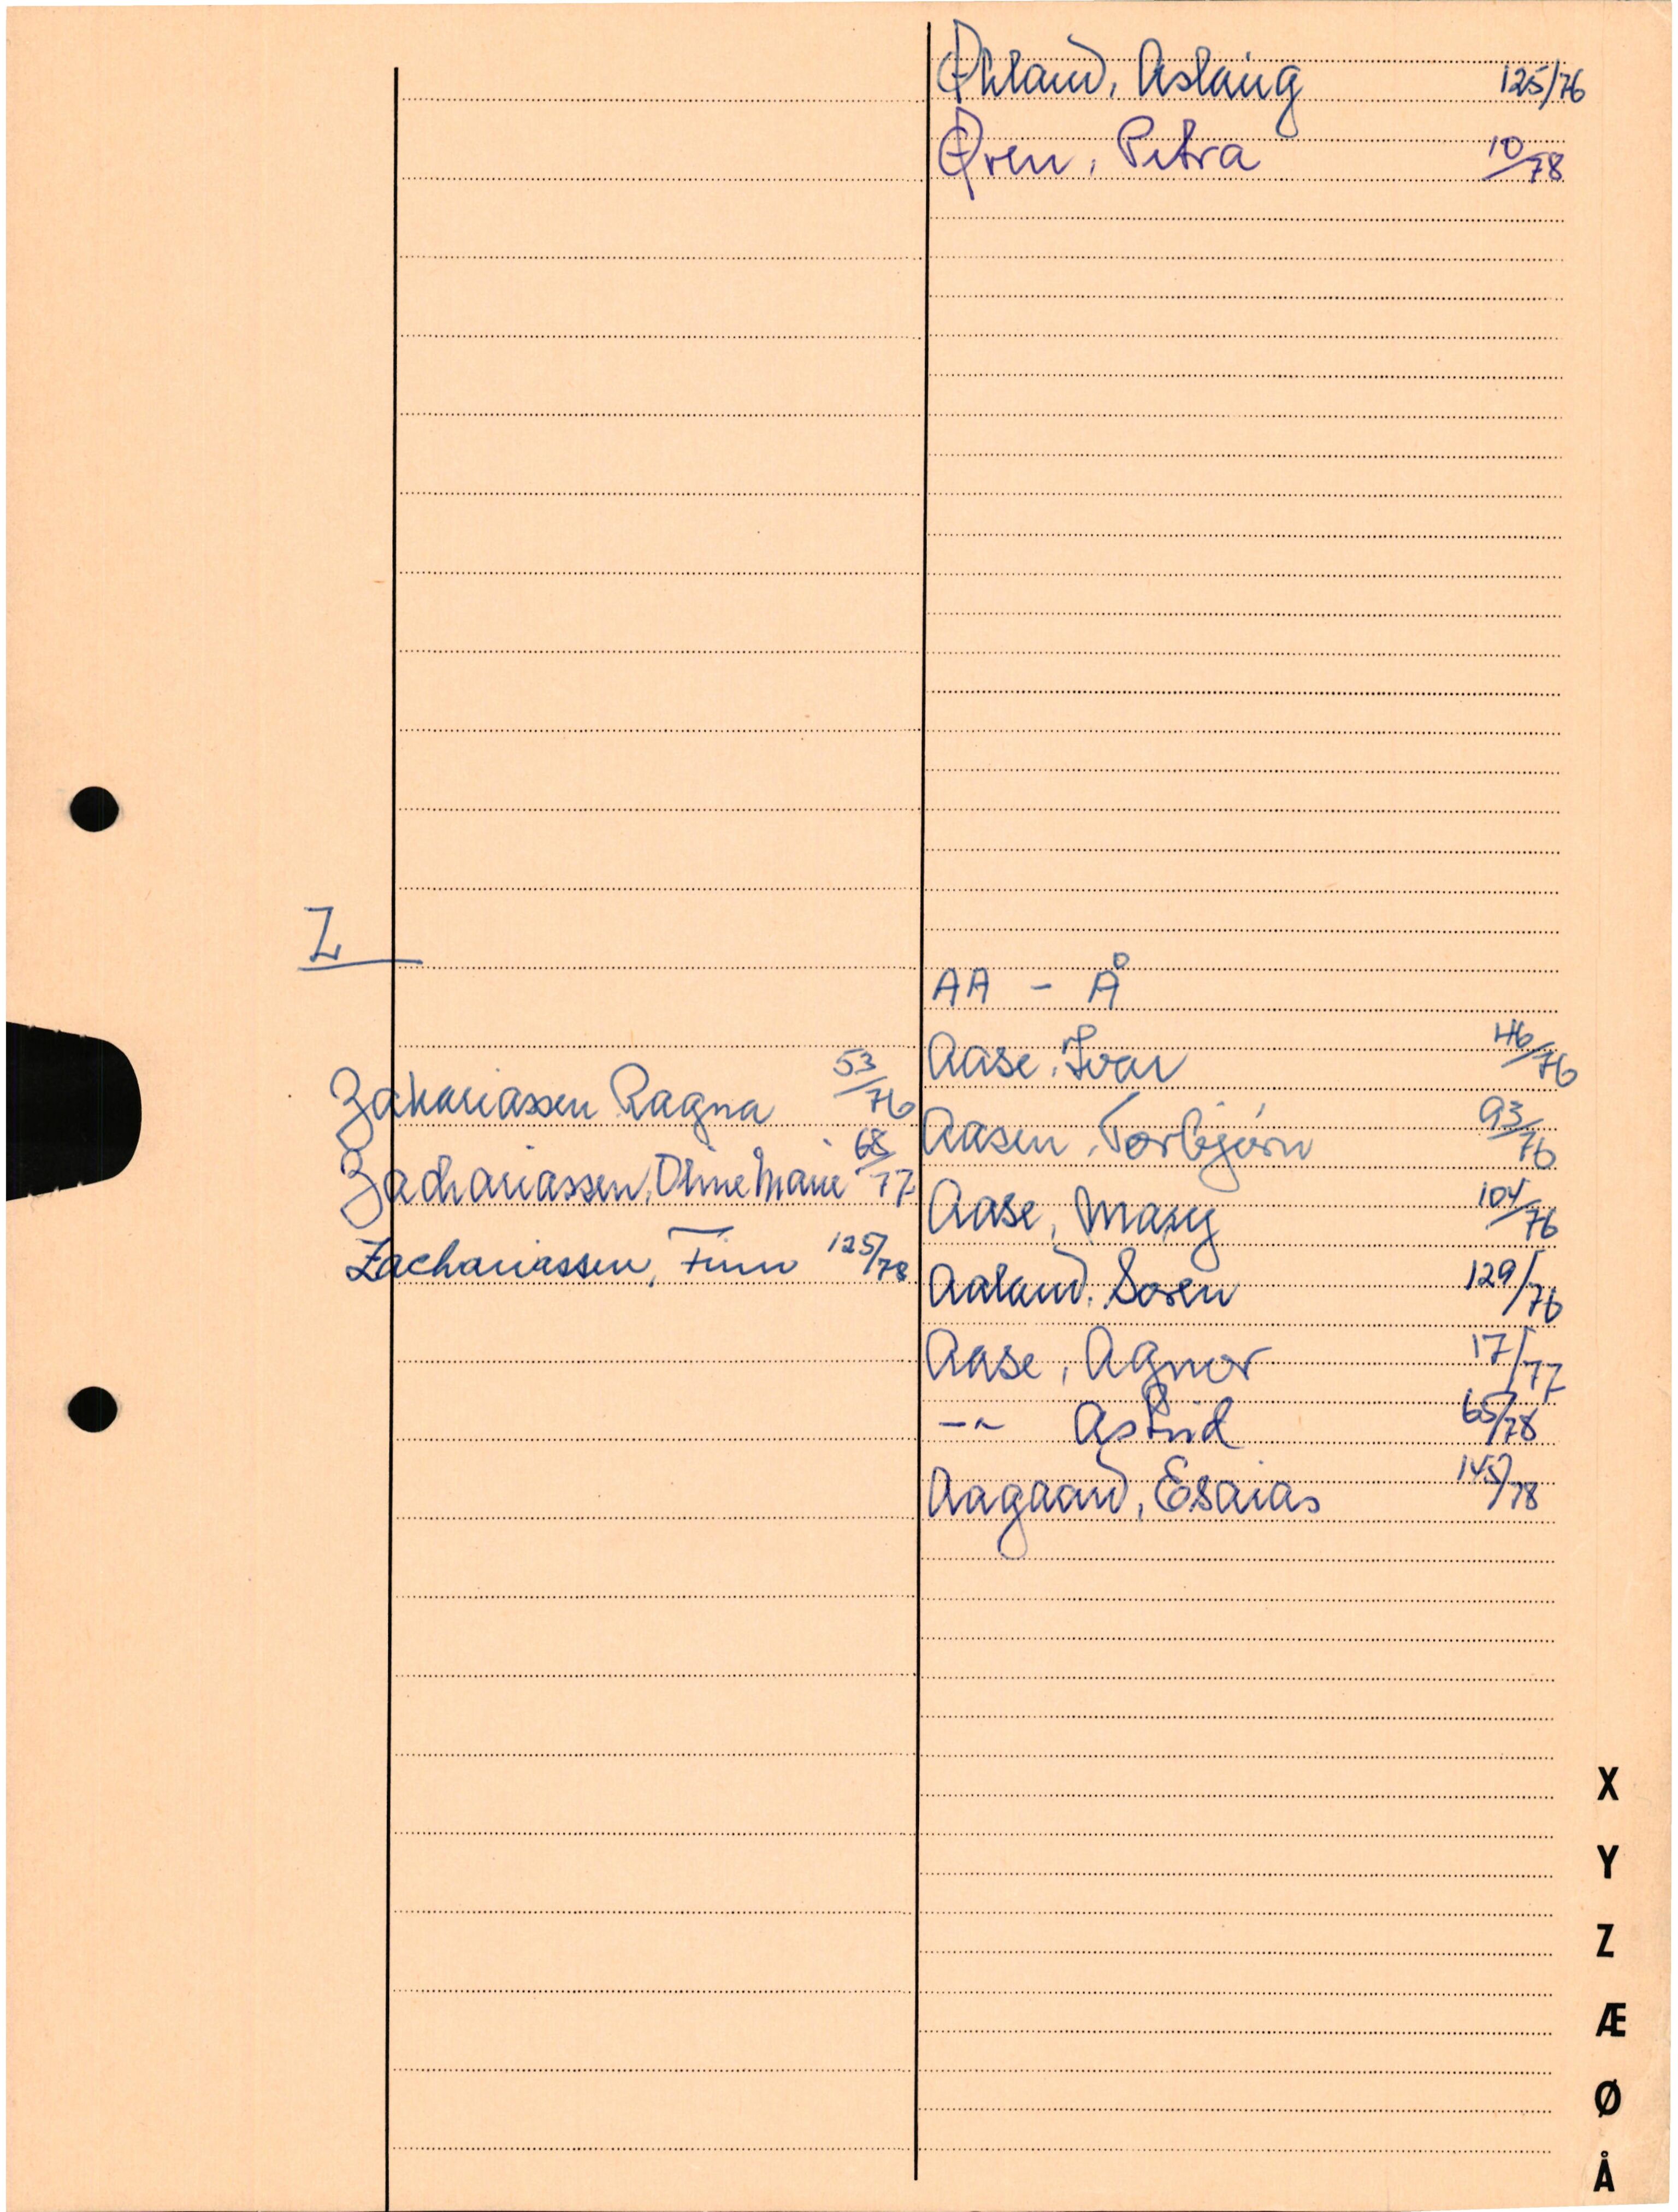 Z
Zakariassen Ragna 53/76
Zachariassen, Oline Marie 68/77
Zachariassen, Finn 125/78
Øhland, Aslaug 125/76
Øren, Petra 10/78
AA - Å
Aase, Ivar 46/76
Aasen, Torbjørn 93/76
Aase, Mary 104/76
Aaland, Soren 129/76
Aase, Agnor 17/77
-"- Astrid 65/78
Aagaard, Esaias 145/78
X
Y
Z
Æ
Ø
Å